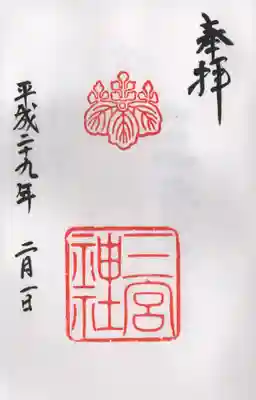 奉拝
二宮
神社
平成二十九年 二月一日